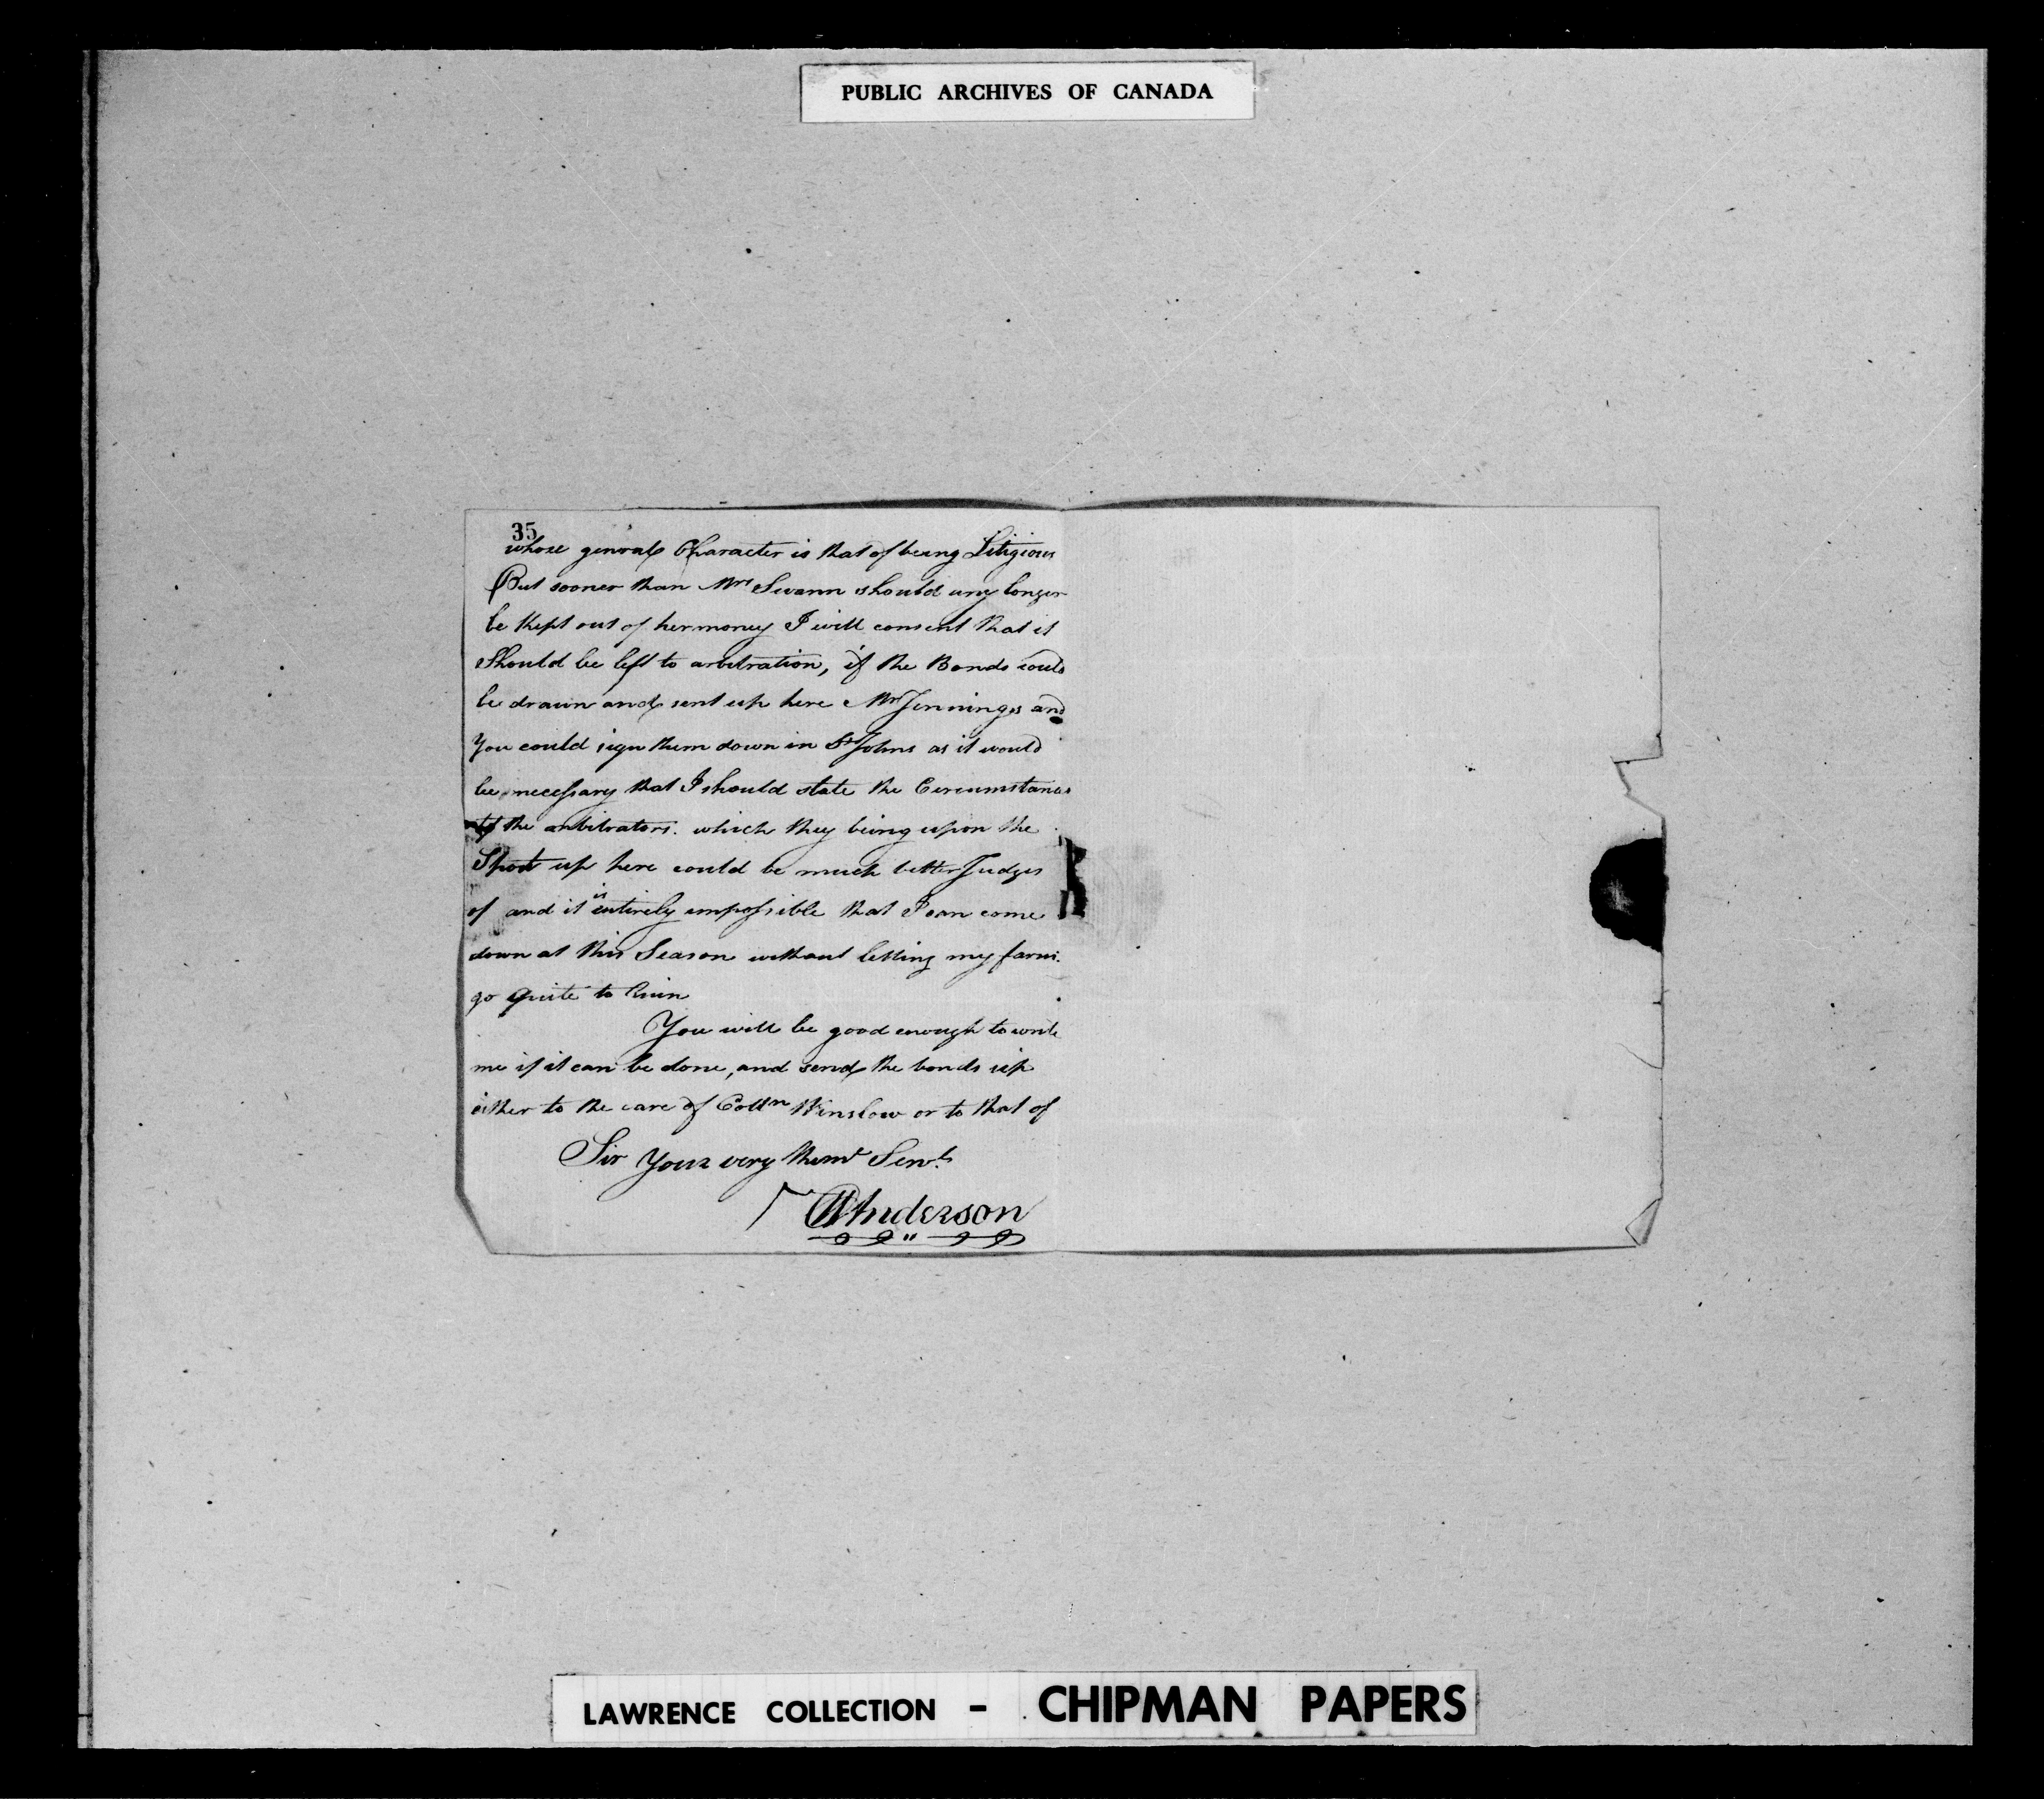 PUBLIC ARCHIVES OF CANADA
35
whose general Character is that of being Litigious
But sooner than Mrs Swann should any longer
be kept out of her money I will consent that it
Should be left to arbitration, if the Bonds could
be drawn and sent up here Mr Jennings and
You could sign them down in St Johns as it would
be necessary that I should state the Circumstances
to the arbitrators. which they being upon the
Spot up here could be much better Judges
of and it is entirely impossible that I can come
down at this Season without letting my farm
go quite to Ruin
You will be good enough to write
me if it can be done, and send the bonds up
either to the care of Colln Winslow or to that of
Sir Your very Humb Servt
Anderson
LAWRENCE COLLECTION - CHIPMAN PAPERS